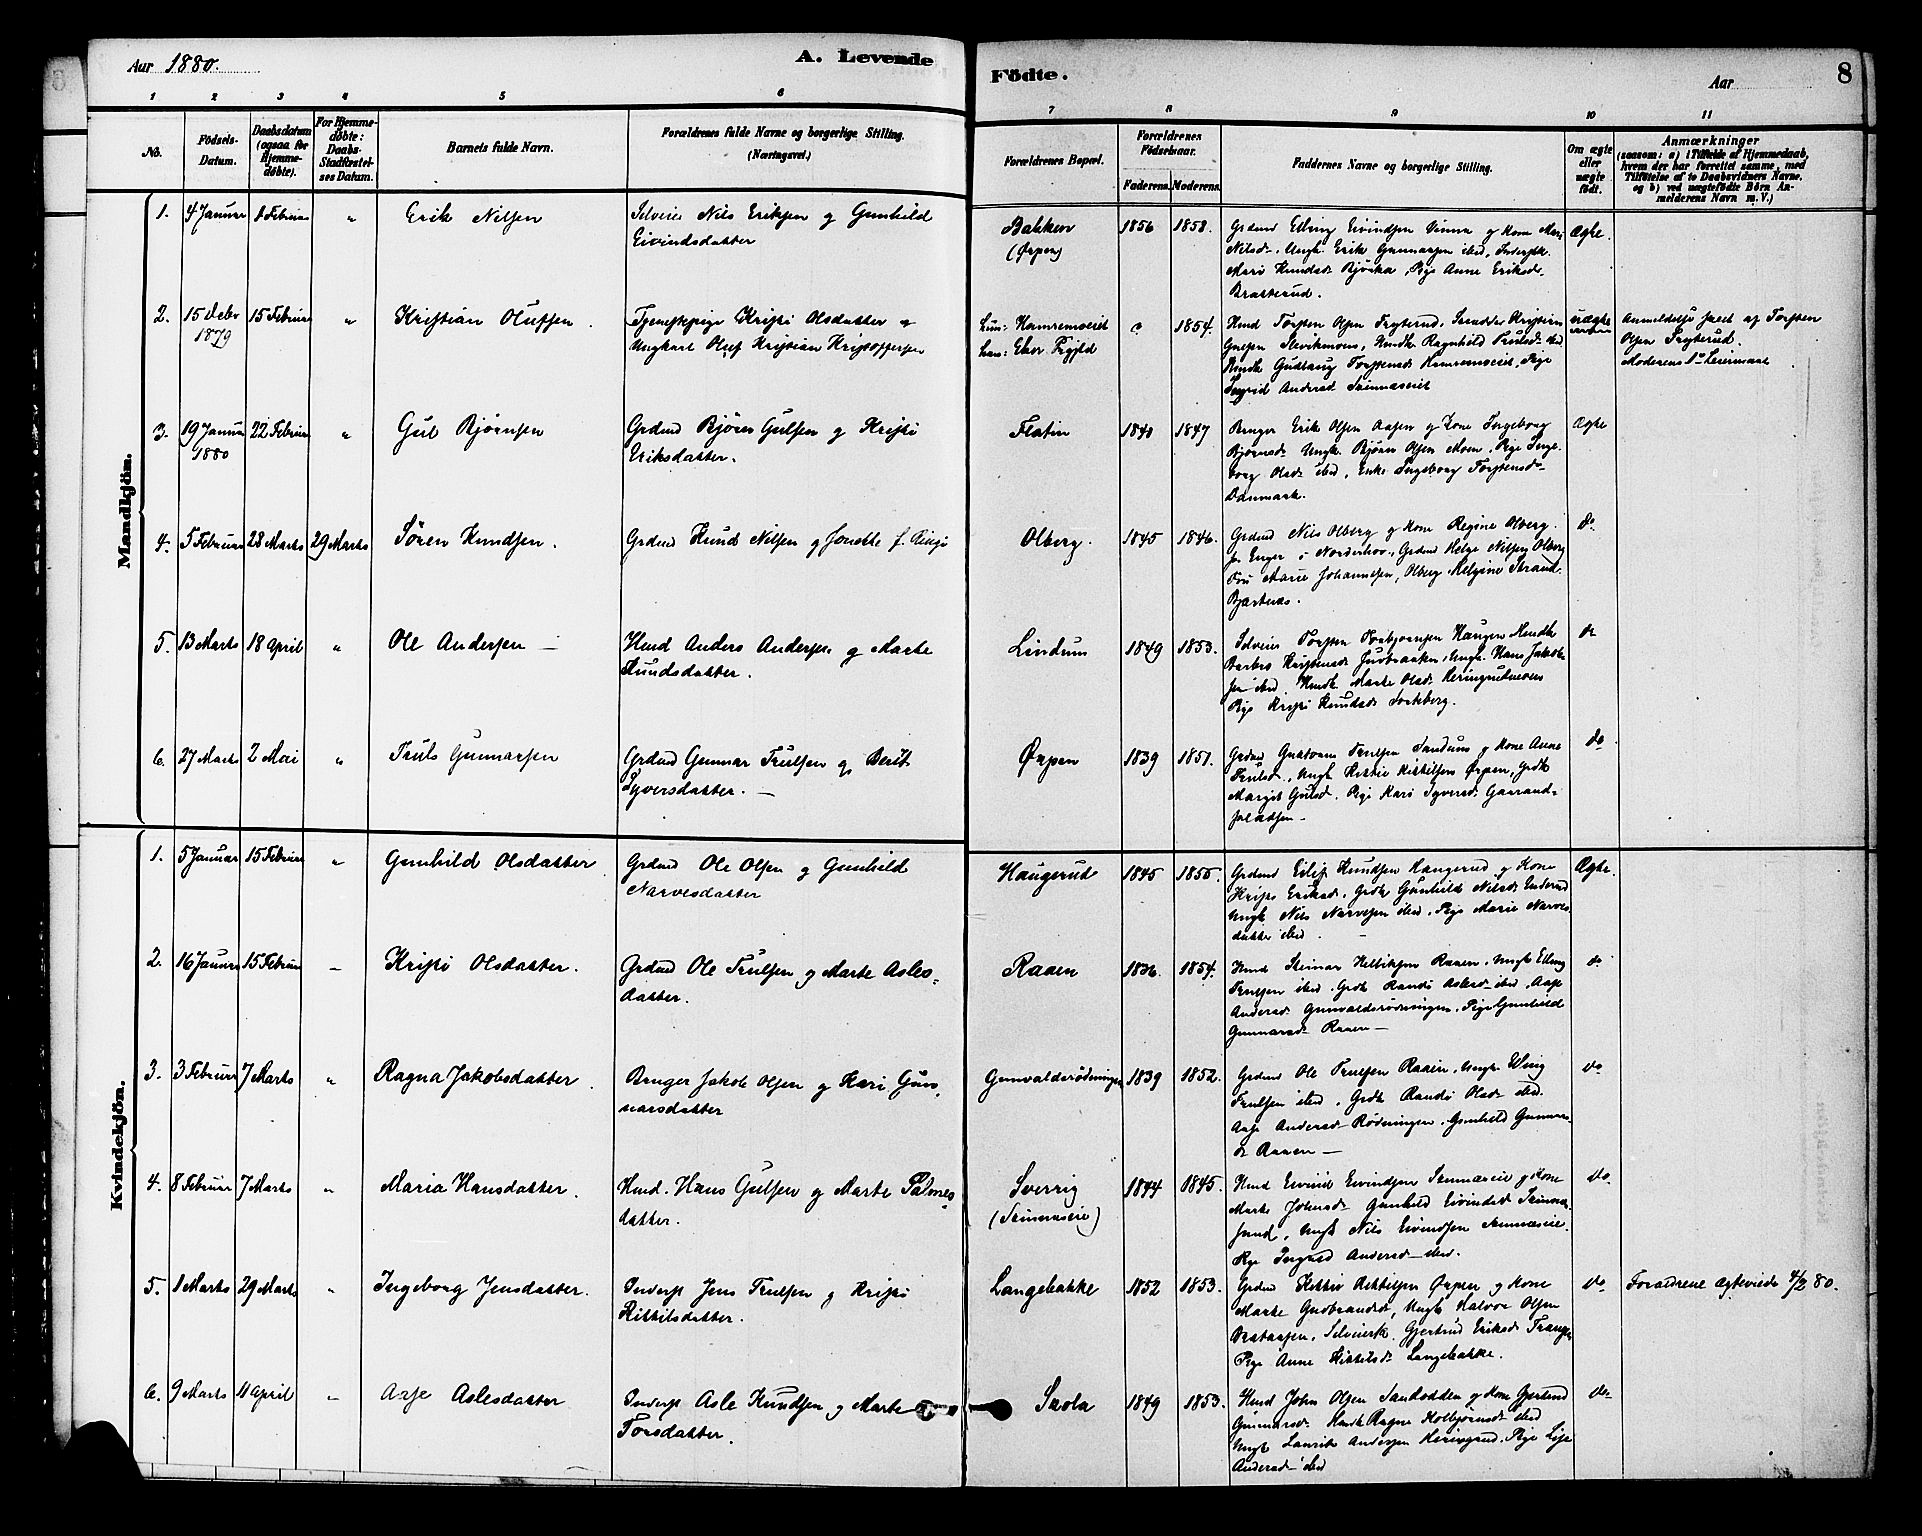 Aar 1880.
A. Levende
Födte.
Aar
8
1 2 3 4 5 6
7 8 9 10 11
No.
Födsels-
Datum.
Daabsdatum
(ogsaa for
Hjemme-
døbte).
For Hjemme-
døbte:
Daabs-
Stadfæstel-
ses Datum.
Barnets fulde Navn.
Forældrenes fulde Navne og borgerlige Stilling.
(Næringsvei.)
Forældrenes Bopæl.
Forældrenes
Födselsaar.
Faderens. Moderens.
Faddernes Navne og borgerlige Stilling.
Om ægte
eller
uægte
født.
Anmærkninger
(saasom: a) i Tilfælde af Hjemmedaab,
hvem der har forrettet samme, med
Tilføielse af to Daabsvidners Navne,
og b) ved uægtefødte Börn An-
melderens Navn m. V.)
Mandkjön.
1. 4 Januar 8 Februar " Erik Nilsen
Selveier Nils Eriksen og Gunhild
Eivindsdatter
Bakken
(Ørpen)
1856 1858.
Grdmd Elling Eivindsen og Kone Mari
Nilsd. Ungk. Erik Gunnarsen ibid,
Mari Knudsd. Bjøra, Pige Anne Eriksd.
Braaterud.
Ægte.
2. 15 Debr 15 Februar " Kristian Olufsen.
1879
Tjenestepige Kristi Olsdatter og
Ungkarl Oluf Kristian Kristoffersen
Hun: Hamremoeiet
Han:
? 1854.
Hmd Torsten Olsen Fryterud, Kristian
Hmdk Ragnhild Trulsd. ibid
Hmdk Gudbaug Torstensd Hamremoeiet, Pige
Ingrid Andersd
uægte
Anmeldelse skeet af Torsten
Olsen Fryterud.
Moderens 1ste Leiermaal
3. 19 Januar 22 Februar " Gul Bjørnsen
1880
Grdmd Bjørn Gulsen og Kristi
Eriksdatter.
Flatin
1840 1847
Bruger Erik Olsen Aasen og Kone Ingeborg
Bjørnsd. Ungk. Bjørn Olsen Moen, Pige Inge-
borg Olsd. ibid, Enke Ingeborg Torstensd.
Danmark.
Ægte
4. 5 Februar 28 Marts 29 Marts Sören Knudsen.
Grdmd Knud Nilsen og Jonette f. Ringi
Olberg.
1845 1846.
Grdmd Nils Olberg og Kone Regine Olberg.
fr. Enger i Norderhov, Grdmd Helge Nilsen Olberg
Fru Marie Johannesen, Olberg. Helgine Strand.
Bjertnæs.
do.
5. 13 Marts 18 April " Ole Andersen —
Hmd Anders Andersen og Marte
Knudsdatter.
Lindum
1849 1853.
Selveier Torsten Torbjørnsen Haugen Hmdk
Barbro Kristensd. Gudbraaten, Ungk. Hans Jakob-
sen ibid. Hmdk Marte Olsd.
Pige Kristi Knudsd.
do
6. 27 Marts 2 Mai " Truls Gunnarsen
Grdmd Gunnar Trulsen og Berit
Syversdatter. —
Ørpen
1839 1851.
Grdmd Guttorm Trulsen Sandum og Kone Anne
Trulsd., Ungk Kittil Kittilsen Ørpen, Grdk
Margit Gulsd. Pige Kari Syversd. Gaarand-
pladsen —
do
Kvindekjön.
1. 5 Januar 15 Februar " Gunhild Olsdatter.
Grdmd Ole Olsen og Gunhild
Narvesdatter
Haugerud
1845 1855.
Grdmd Eilif Knudsen Haugerud og Kone
Kristi Eriksd. Grdk Gunhild Nilsd. Enderud
Ungk Nils Narvesen ibid. Pige Marie Narves
datter ibid. —
Ægte.
2. 16 Januar 15 Februar — Kristi Olsdatter.
Grdmd Ole Trulsen og Marte Asles-
datter.
Raaen
1836. 1854.
Hmd Steinar Kittilsen Raaen, Ungk Elling
Trulsen ibid. Grdk Randi Aslesd. ibid, Aase
Andersd. Gunvaldsrödningen. Pige Gunhild
Gunnarsd. Raaen —
do
3. 3 Februar 7 Marts " Ragna Jakobsdatter.
Bruger Jakob Olsen og Kari Gun-
narsdatter
Gunvaldsrödningen
1839 1852.
Grdmd Ole Trulsen Raaen, Ungk Elling
Trulsen ibid, Grdk Randi Olsd. ibid.
Aase Andersd. Rödningen. Gunhild Gunnars
d. Raaen —
do
4. 8 Februar 7 Marts " Maria Hansdatter.
Hmd. Hans Gulsen og Marte Palmes-
datter.
Sverrig
(Skinnæseie)
1844 1845.
Hmd Eivind Eivindsen Skinnæseie og Kone
Marte Johnsd. Gunhild Eivindsd.
Ungk Nils Eivindsen Skinnæseie.
Pige Ingrid Andersd. ibid.
do.
5. 1 Marts 29 Marts " Ingeborg Jensdatter.
Inderst Jens Trulsen og Kristi
Kittilsdatter.
Langebakke
1852 1853.
Grdmd Kittil Kittilsen Ørpen og Kone
Marte Gudbrandsd., Ungk Halvor Olsen
Selveierk. Gjertrud Eriksd.
Pige Anne Kittilsd. Langebakke.
do
Forældrene ægteviede 4/2 80.
6. 9 Marts 11 April — Aase Aslesdatter
Inderst Asle Knudsen og Marte
Torsdatter.
Skola
1849 1853.
Hmd John Olsen Sandodden og Kone Gjertrud
Gunnarsd. Hmdk Ragne Kolbjørnsd. ibid
Ungk Laurits Andersen Pige Lise
Andersd. ibid
do.